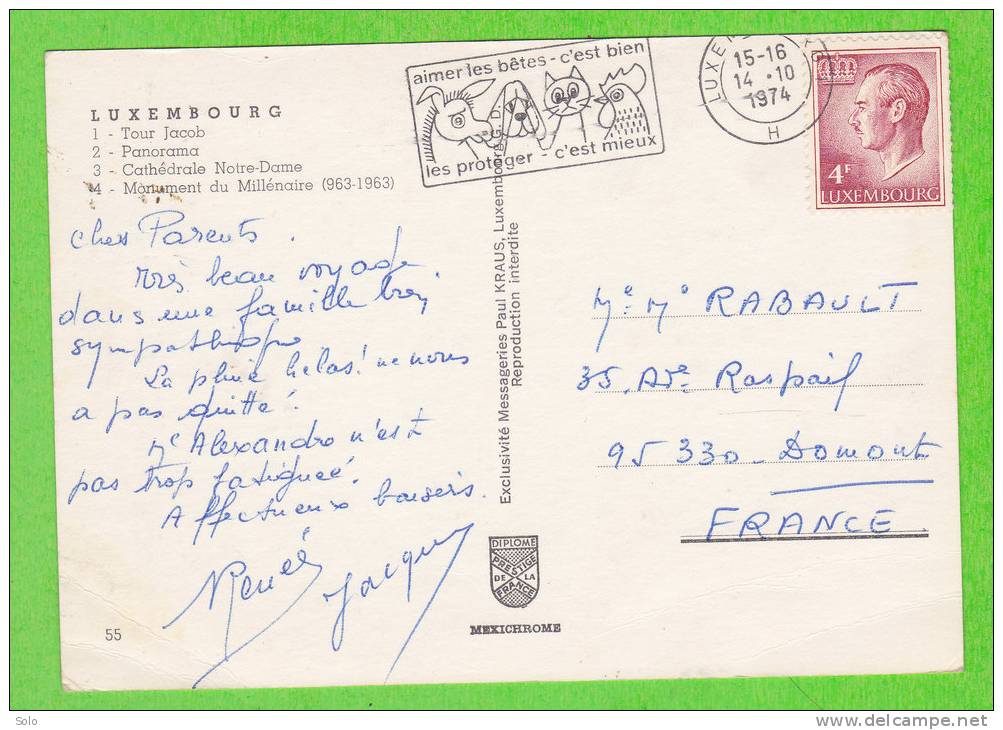 LUXEMBOURG
1 - Tour Jacob
2 - Panorama
3 - Cathédrale Notre-Dame
4 - Monument du Millénaire (963-1963)
Chers Parents.
Très beau voyage
dans une famille très
sympathique
La pluie hélas! ne nous
a pas quitté.
Me Alexandre n'est
pas trop fatiguée.
Affectueux baisers.
Renée Jacques
55
aimer les bêtes - c'est bien
les protéger - c'est mieux
15-16
14.10
1974
H
4F
LUXEMBOURG
Exclusivité Messageries Paul KRAUS, Luxembourg G. D.
Reproduction interdite
Me. Mr RABAULT
35. Ave Raspail
95330 - Domont
FRANCE
DIPLOME
PRESTIGE
DE LA
FRANCE
MEXICHROME
Solo
www.delcampe.net